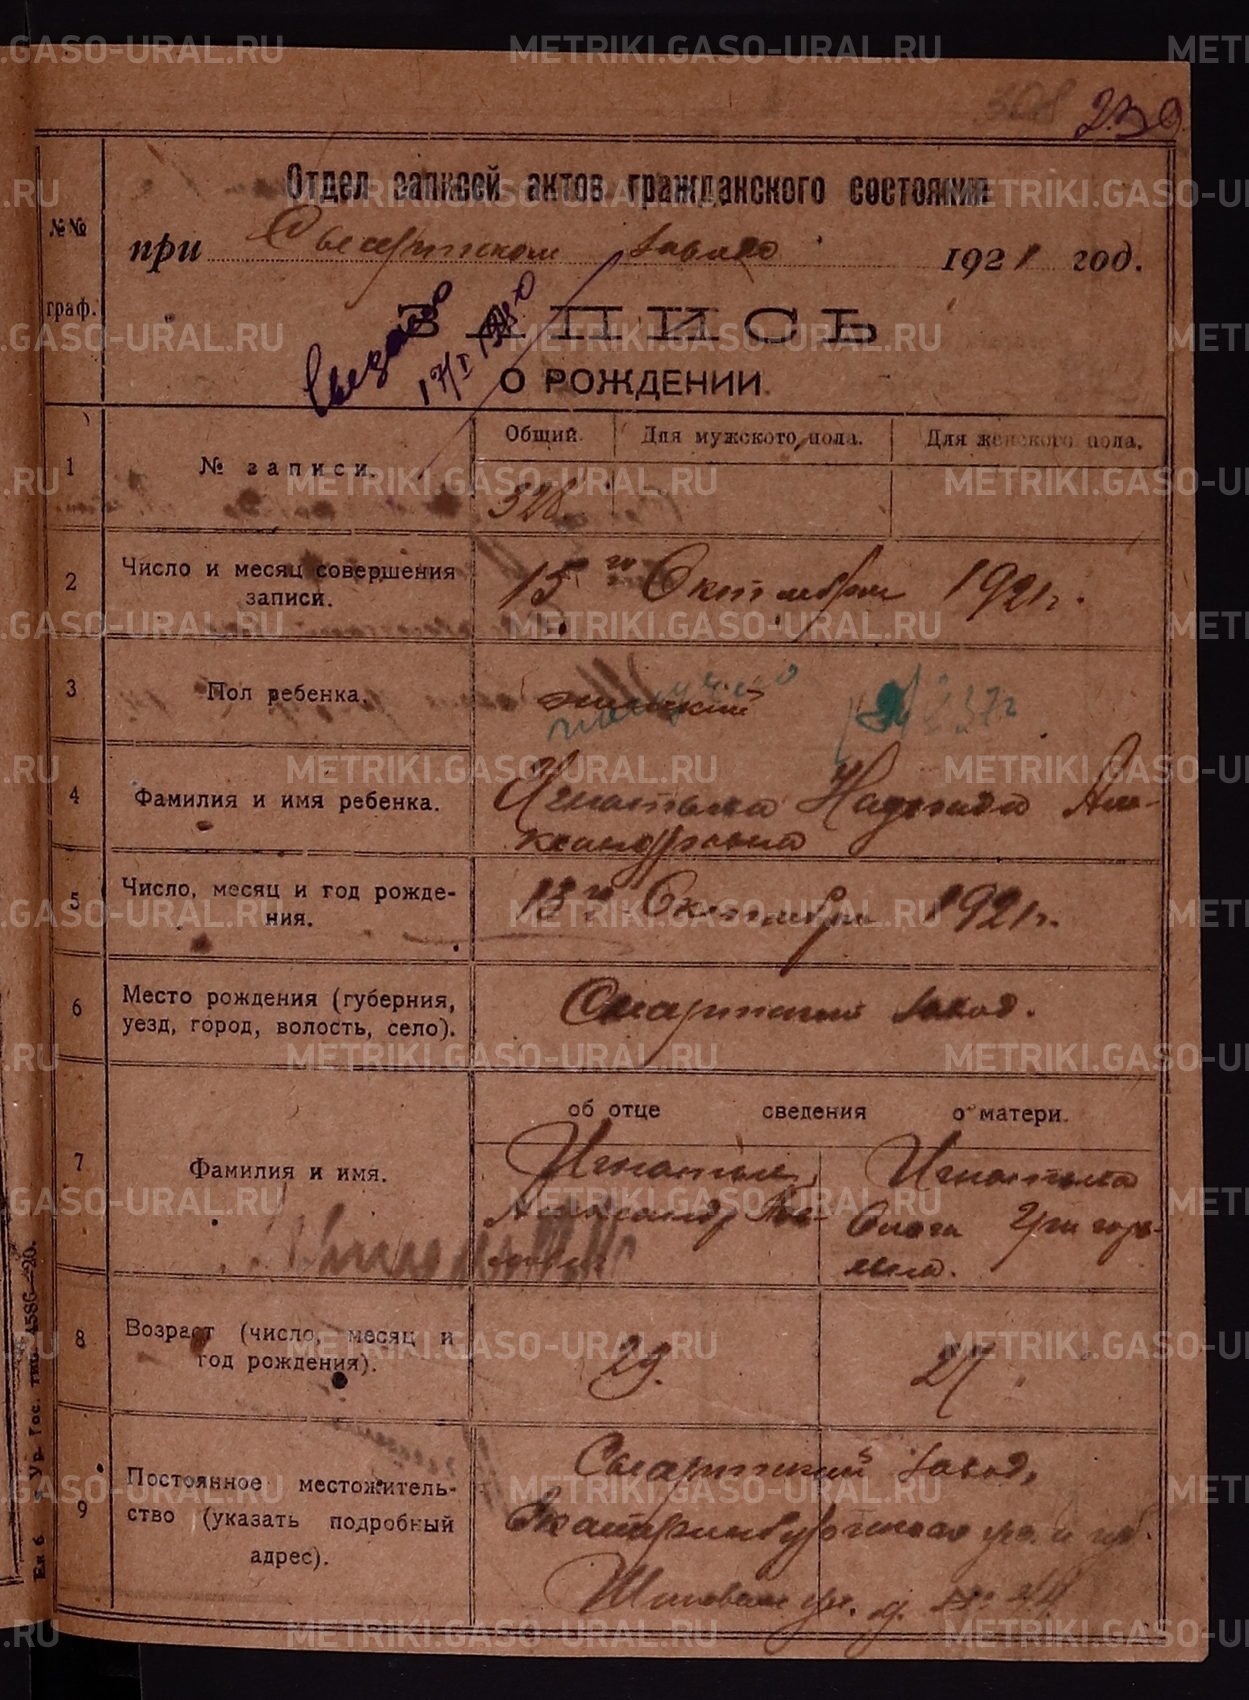 239
Отдел записей актов гражданского состояния
№№ граф.
при Сысертском заводе 1921 год.
ЗАПИСЬ
О РОЖДЕНИИ.
Общий. Для мужского пола. Для женского пола.
1 № записи.
328.
2 Число и месяц совершения
записи.
15го Октября 1921г.
3 Пол ребенка.
женский
4 Фамилия и имя ребенка.
Игнатьева Надежда Але-
ксандровна
5 Число, месяц и год рожде-
ния.
13го Октября 1921г.
6 Место рождения (губерния,
уезд, город, волость, село).
Сысертский завод.
об отце сведения о матери.
7 Фамилия и имя.
Игнатьев Игнатьева
Александр Ольга Григорь-
евна.
8 Возраст (число, месяц и
год рождения).
29. 27
9 Постоянное местожитель-
ство (указать подробный
адрес).
Сысертский завод,
Екатеринбургского уез. и губ.
ул. д. № 44
METRIKI.GASO-URAL.RU